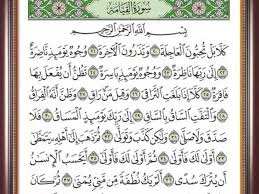 سُورَةُ الْقِيَامَةِ
بِسْمِ اللَّهِ الرَّحْمَٰنِ الرَّحِيمِ
كَلَّا بَلْ تُحِبُّونَ الْعَاجِلَةَ ٢٠ وَتَذَرُونَ الْآخِرَةَ ٢١ وُجُوهٌ يَوْمَئِذٍ نَاضِرَةٌ ٢٢
إِلَىٰ رَبِّهَا نَاظِرَةٌ ٢٣ وَوُجُوهٌ يَوْمَئِذٍ بَاسِرَةٌ ٢٤ تَظُنُّ أَنْ يُفْعَلَ بِهَا
فَاقِرَةٌ ٢٥ كَلَّا إِذَا بَلَغَتِ التَّرَاقِيَ ٢٦ وَقِيلَ مَنْ رَاقٍ ٢٧ وَظَنَّ أَنَّهُ الْفِرَاقُ
٢٨ وَالْتَفَّتِ السَّاقُ بِالسَّاقِ ٢٩ إِلَىٰ رَبِّكَ يَوْمَئِذٍ الْمَسَاقُ ٣٠ فَلَا
صَدَّقَ وَلَا صَلَّىٰ ٣١ وَلَٰكِنْ كَذَّبَ وَتَوَلَّىٰ ٣٢ ثُمَّ ذَهَبَ إِلَىٰ أَهْلِهِ يَتَمَطَّىٰ
٣٣ أَوْلَىٰ لَكَ فَأَوْلَىٰ ٣٤ ثُمَّ أَوْلَىٰ لَكَ فَأَوْلَىٰ ٣٥ أَيَحْسَبُ الْإِنْسَانُ
أَنْ يُتْرَكَ سُدًى ٣٦ أَلَمْ يَكُ نُطْفَةً مِنْ مَنِيٍّ يُمْنَىٰ ٣٧